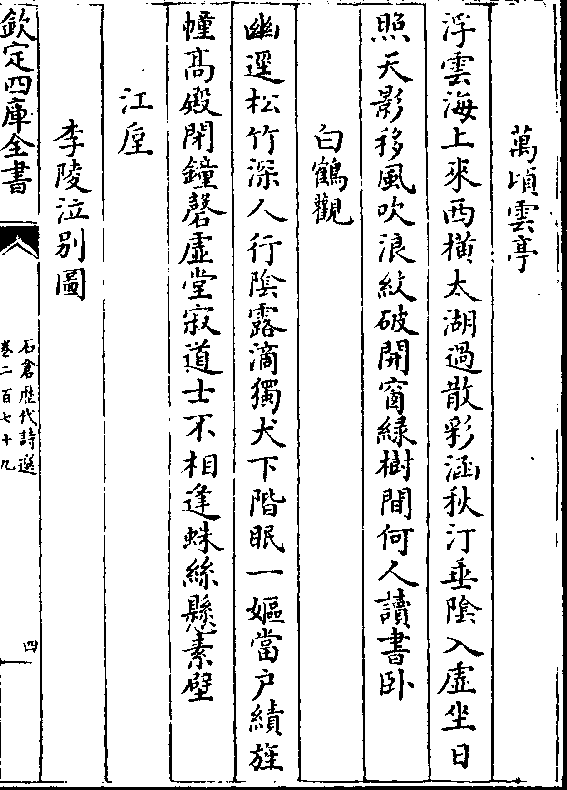 萬頃雲亭
浮雲海上來西橫太湖過散彩涵秋汀垂陰入虛坐日
照天影移風吹浪紋破開窗緑樹間何人讀書卧
白鶴觀
幽逕松竹深人行陰露滴獨犬下階眠一嫗當户績旌
幢高殿閉鐘磬虛堂寂道士不相逢蛛絲懸素壁
江垕
李陵泣别圖
欽定四庫全書
石倉歴代詩選
卷二百七十九
四